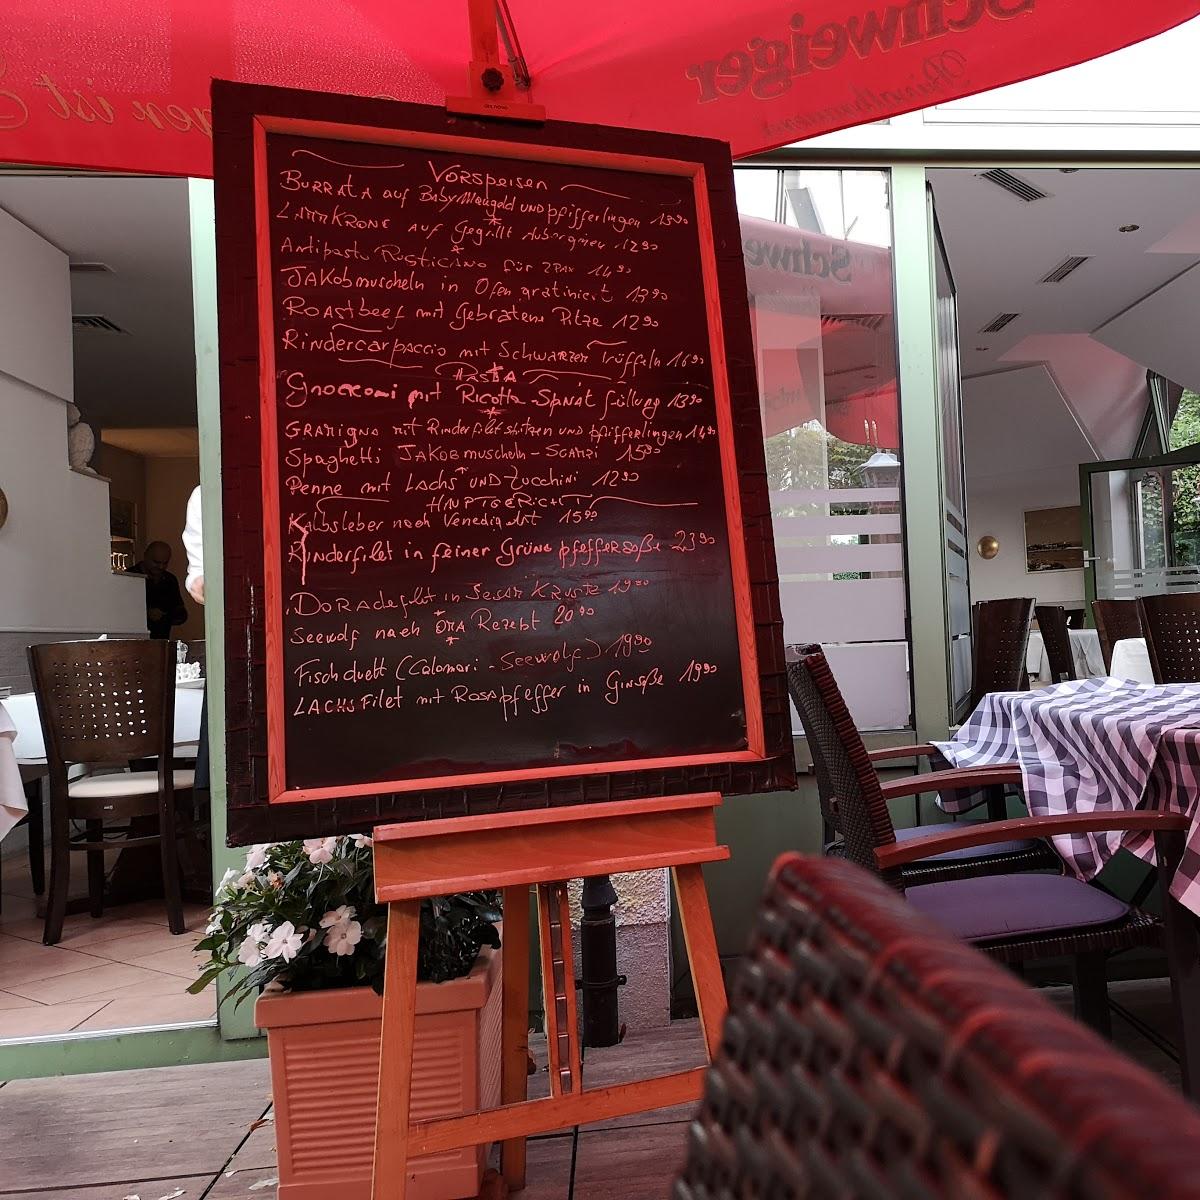 Schweiger
Vorspeisen
BURRATA auf Baby Mangold und pfifferlingen 13 90
LAMMKRONE AUF Gegrillt Auberginen 12 90
Antipasto RUSTICANO für 2 PAX 14 90
JAKobmuscheln in Ofen gratiniert 13 90
Roastbeef mit Gebratene Pilze 12 90
Rindercarpaccio mit Schwarzer Trüffeln 16 90
PASTA
Gnocconi mit Ricotta-Spinat füllung 13 90
GRAMIGNA mit Rinderfiletspitzen und pfifferlingen 14 90
Spaghetti JAKOBmuscheln - SCAMPI 15 90
Penne mit LACHS UND Zucchini 12 90
HAUPTGERICHT
Kalbsleber nach Venedig Art 15 90
Rinderfilet in feiner Grüne pfeffersoße 23 90
DoRAdefilet in Sesam KRUSTE 19 90
Seewolf nach OMA Rezept 20 90
Fischduett (Calamari - Seewolf) 19 90
LACHSFilet mit Rosa pfeffer in Ginsoße 19 90
Schwe